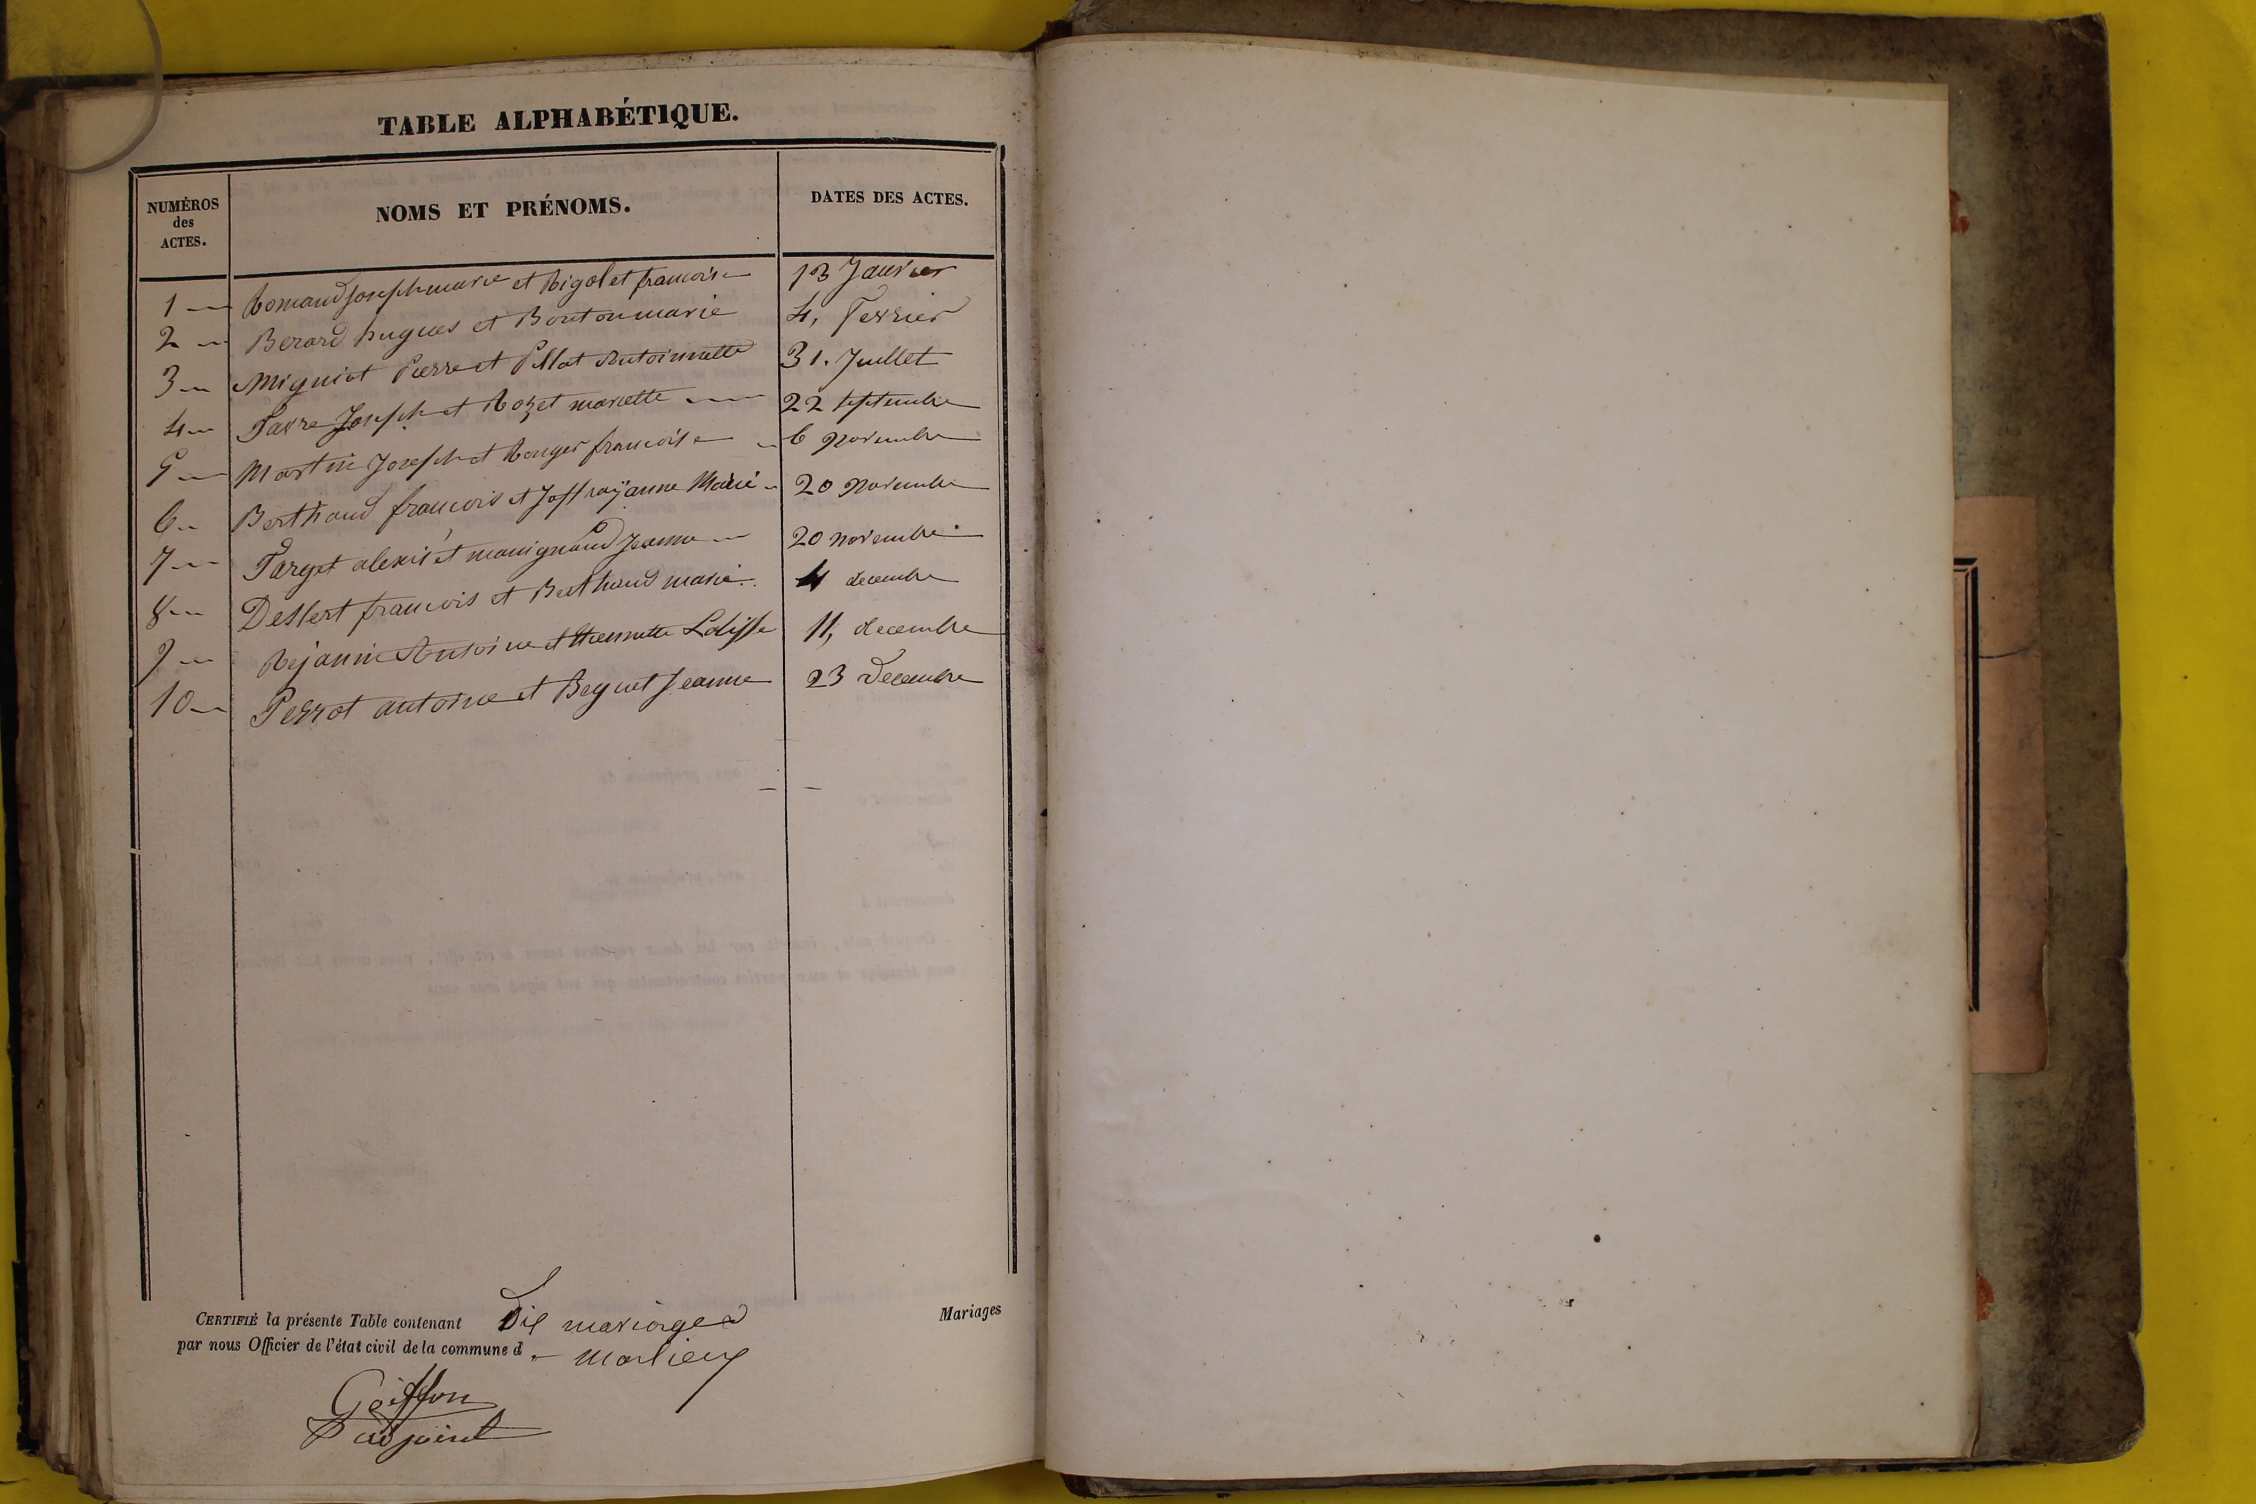 TABLE ALPHABÉTIQUE.
NUMÉROS des ACTES. NOMS ET PRÉNOMS. DATES DES ACTES.
1 Romand Joseph marie et Rigolet francoise 13 Janvier
2 Berard hugues et Bouton marie 4, Fevrier
3 Migniot Pierre et Pillat Antoinnette 31. Juillet
4 Favre Joseph et Rozet mariette 22 septembre
5 Martin Joseph et Rouger francoise 6 novembre
6 Berthaud francois et Joffray anne Marie 20 novembre
7 Farget alexis et manignand Jeanne 20 novembre
8 Deslert francois et Berthaud marie 4 decembre
9 Rejanin Antoine et Etiennette 11, decembre
10 Perrot antoine et Beguet Jeanne 23 Decembre
CERTIFIÉ la présente Table contenant Dix mariages Mariages
par nous Officier de l'état civil de la commune d e marlieux
Goiffon
adjoint